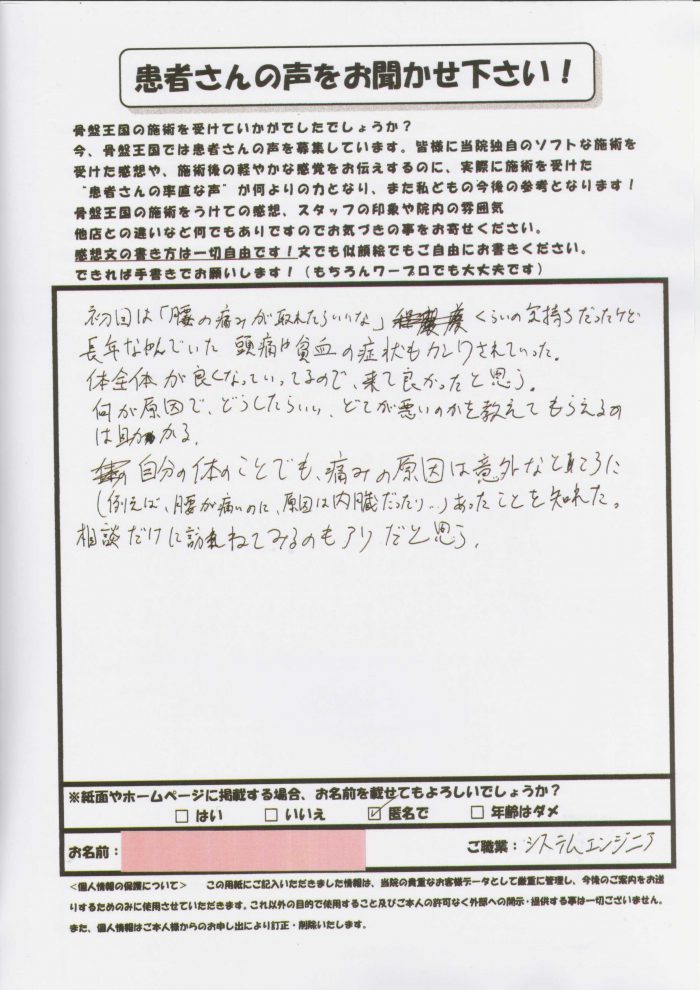 患者さんの声をお聞かせ下さい！
骨盤王国の施術を受けていかがでしたでしょうか？
今、骨盤王国では患者さんの声を募集しています。皆様に当院独自のソフトな施術を
受けた感想や、施術後の軽やかな感覚をお伝えするのに、実際に施術を受けた
"患者さんの率直な声"が何よりの力となり、また私どもの今後の参考となります！
骨盤王国の施術をうけての感想、スタッフの印象や院内の雰囲気
他店との違いなど何でもありですのでお気づきの事をお寄せください。
感想文の書き方は一切自由です！文でも似顔絵でもご自由にお書きください。
できれば手書きでお願いします！（もちろんワープロでも大丈夫です）
初回は「腰の痛みが取れたらいいな」くらいの気持ちだったけど
長年なやんでいた 頭痛や貧血の症状もカンワされていった。
体全体が良くなっていってるので、来て良かったと思う。
何が原因で、どうしたらいい、どこが悪いのかを教えてもらえるの
は助かる。
自分の体のことでも、痛みの原因は意外なところに
（例えば、腰が痛いのに、原因は内臓だったり…）あったことを知れた。
相談だけに訪ねてみるのもアリだと思う。
※紙面やホームページに掲載する場合、お名前を載せてもよろしいでしょうか？
□ はい □ いいえ ☑ 匿名で □ 年齢はダメ
お名前： ご職業：システムエンジニア
＜個人情報の保護について＞ この用紙にご記入いただきました情報は、当院の貴重なお客様データとして厳重に管理し、今後のご案内をお送
りするためのみに使用させていただきます。これ以外の目的で使用すること及びご本人の許可なく外部への開示・提供する事は一切ございません。
また、個人情報はご本人様からのお申し出により訂正・削除いたします。